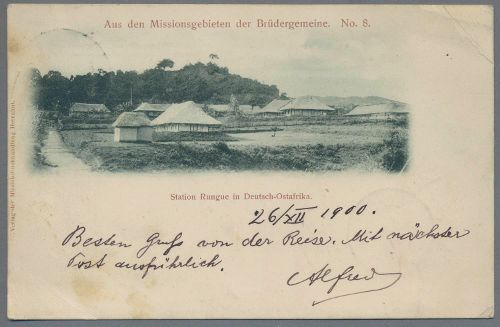 Aus den Missionsgebieten der Brüdergemeine. No. 8.
Verlag der Missionsbuchhandlung Herrnhut.
Station Rungue in Deutsch-Ostafrika.
26/XII 1900.
Besten Gruß von der Reise. Mit nächster
Post ausführlich.
Alfred